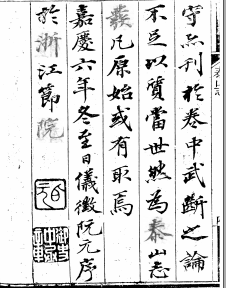 守亦刊於卷中武斷之論
不足以質當世然為泰山志
發凡原始或有取焉
嘉慶六年冬至日儀徵阮元序
於浙江節院